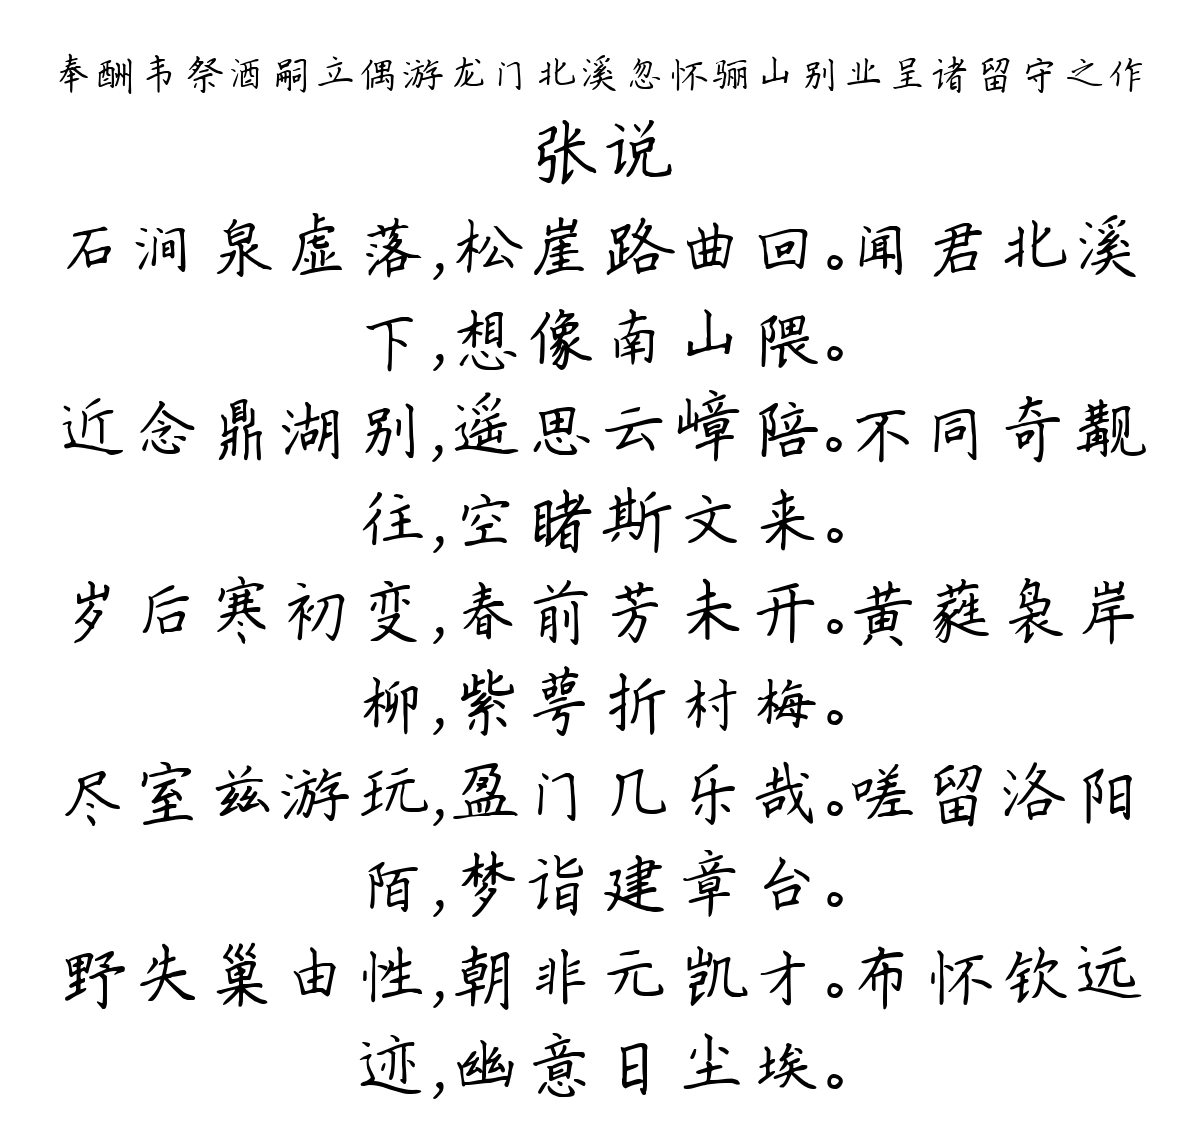 奉酬韦祭酒嗣立偶游龙门北溪忽怀骊山别业呈诸留守之作
张说
石涧泉虚落,松崖路曲回。闻君北溪
下,想像南山隈。
近念鼎湖别,遥思云嶂陪。不同奇觏
往,空睹斯文来。
岁后寒初变,春前芳未开。黄蕤袅岸
柳,紫萼折村梅。
尽室兹游玩,盈门几乐哉。嗟留洛阳
陌,梦诣建章台。
野失巢由性,朝非元凯才。布怀钦远
迹,幽意日尘埃。